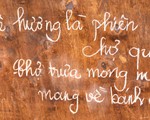 hương là phiên
chợ qu
khỏ trưa mong m
mang về bánh